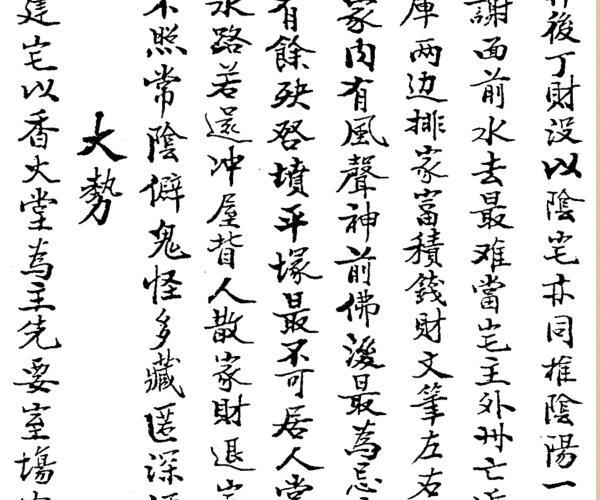 後丁財没以陰宅亦同推陰陽一
謝面前水去最难當宅主外州亡
庫两边排家富積錢財文筆左右
家内有風聲神前佛後最為忌
有餘殃啓墳平塚最不可居人常
水路若還冲屋背人散家財退
不照常陰僻鬼怪多藏匿深
大勢
建宅以香火堂為主先要室場